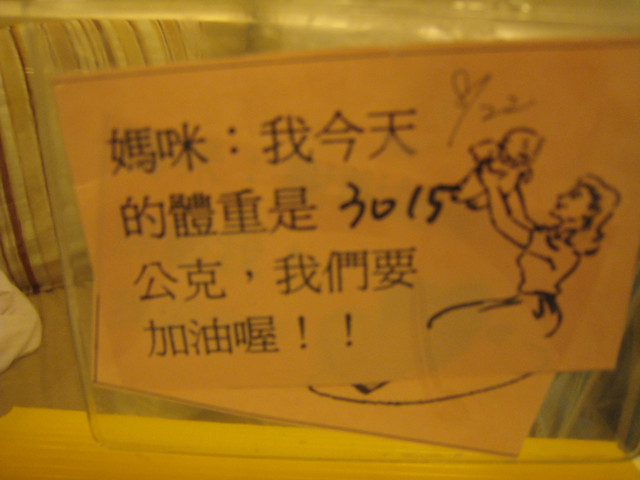 8/22
媽咪：我今天
的體重是 3015
公克，我們要
加油喔！！